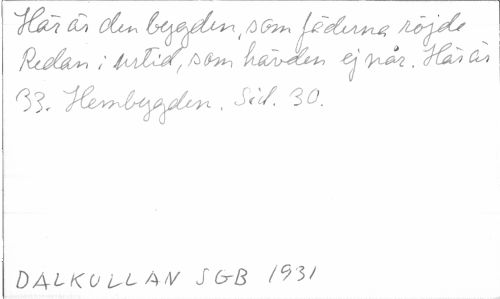 Här är den bygden, som fäderna röjde
Redan i urtid, som hävden ej når. Här är
33. Hembygden. Sid. 30.
DALKULLAN SGB 1931